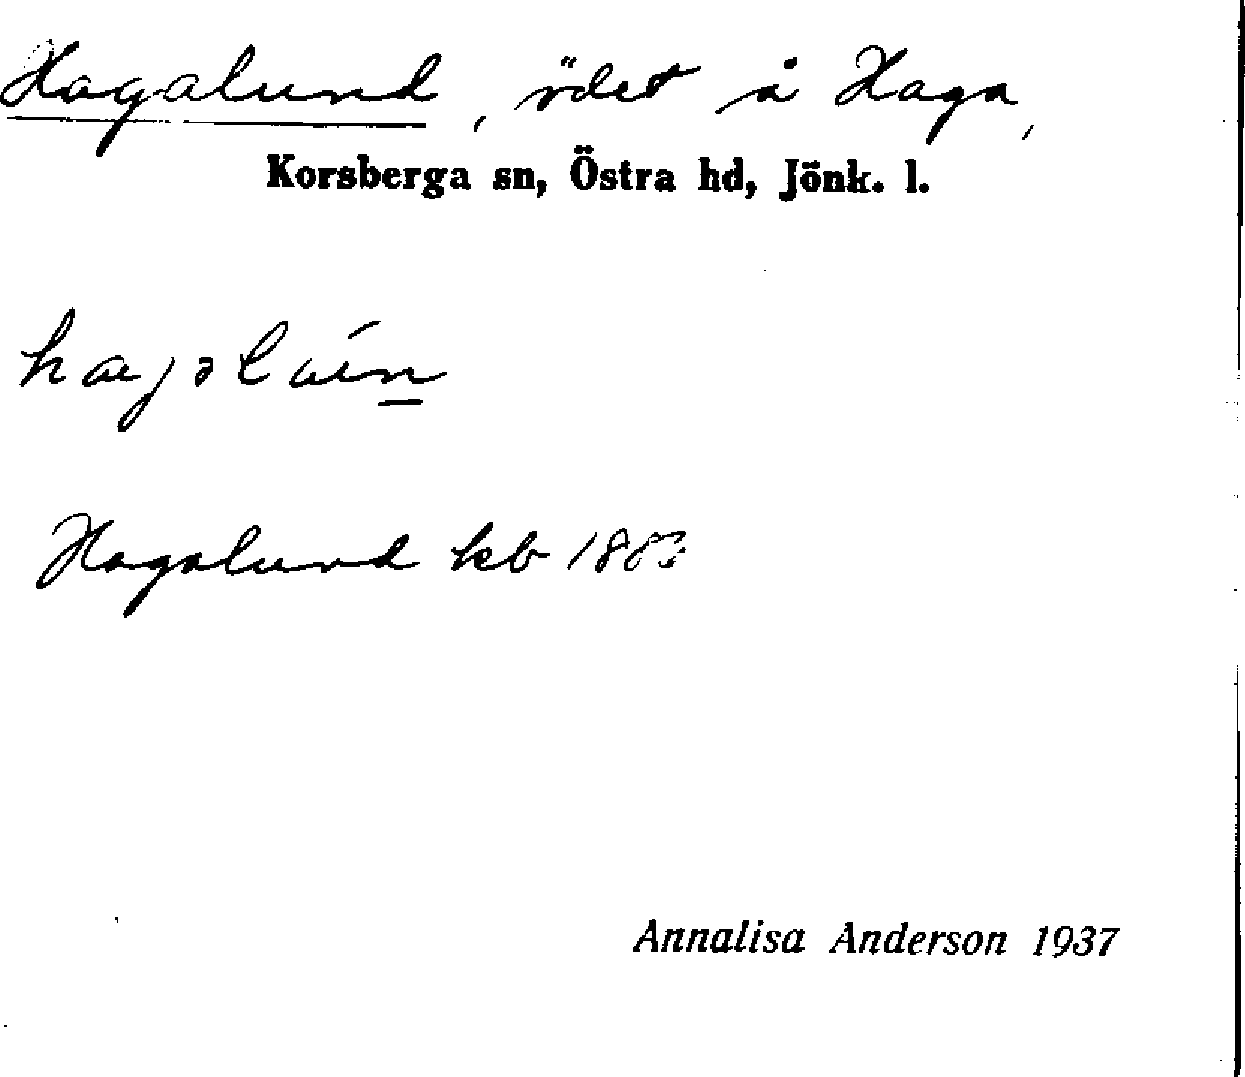 Hagalund, ödet å Haga,
Korsberga sn, Östra hd, Jönk. l.
Hagalund kb 1883
Annalisa Anderson 1937